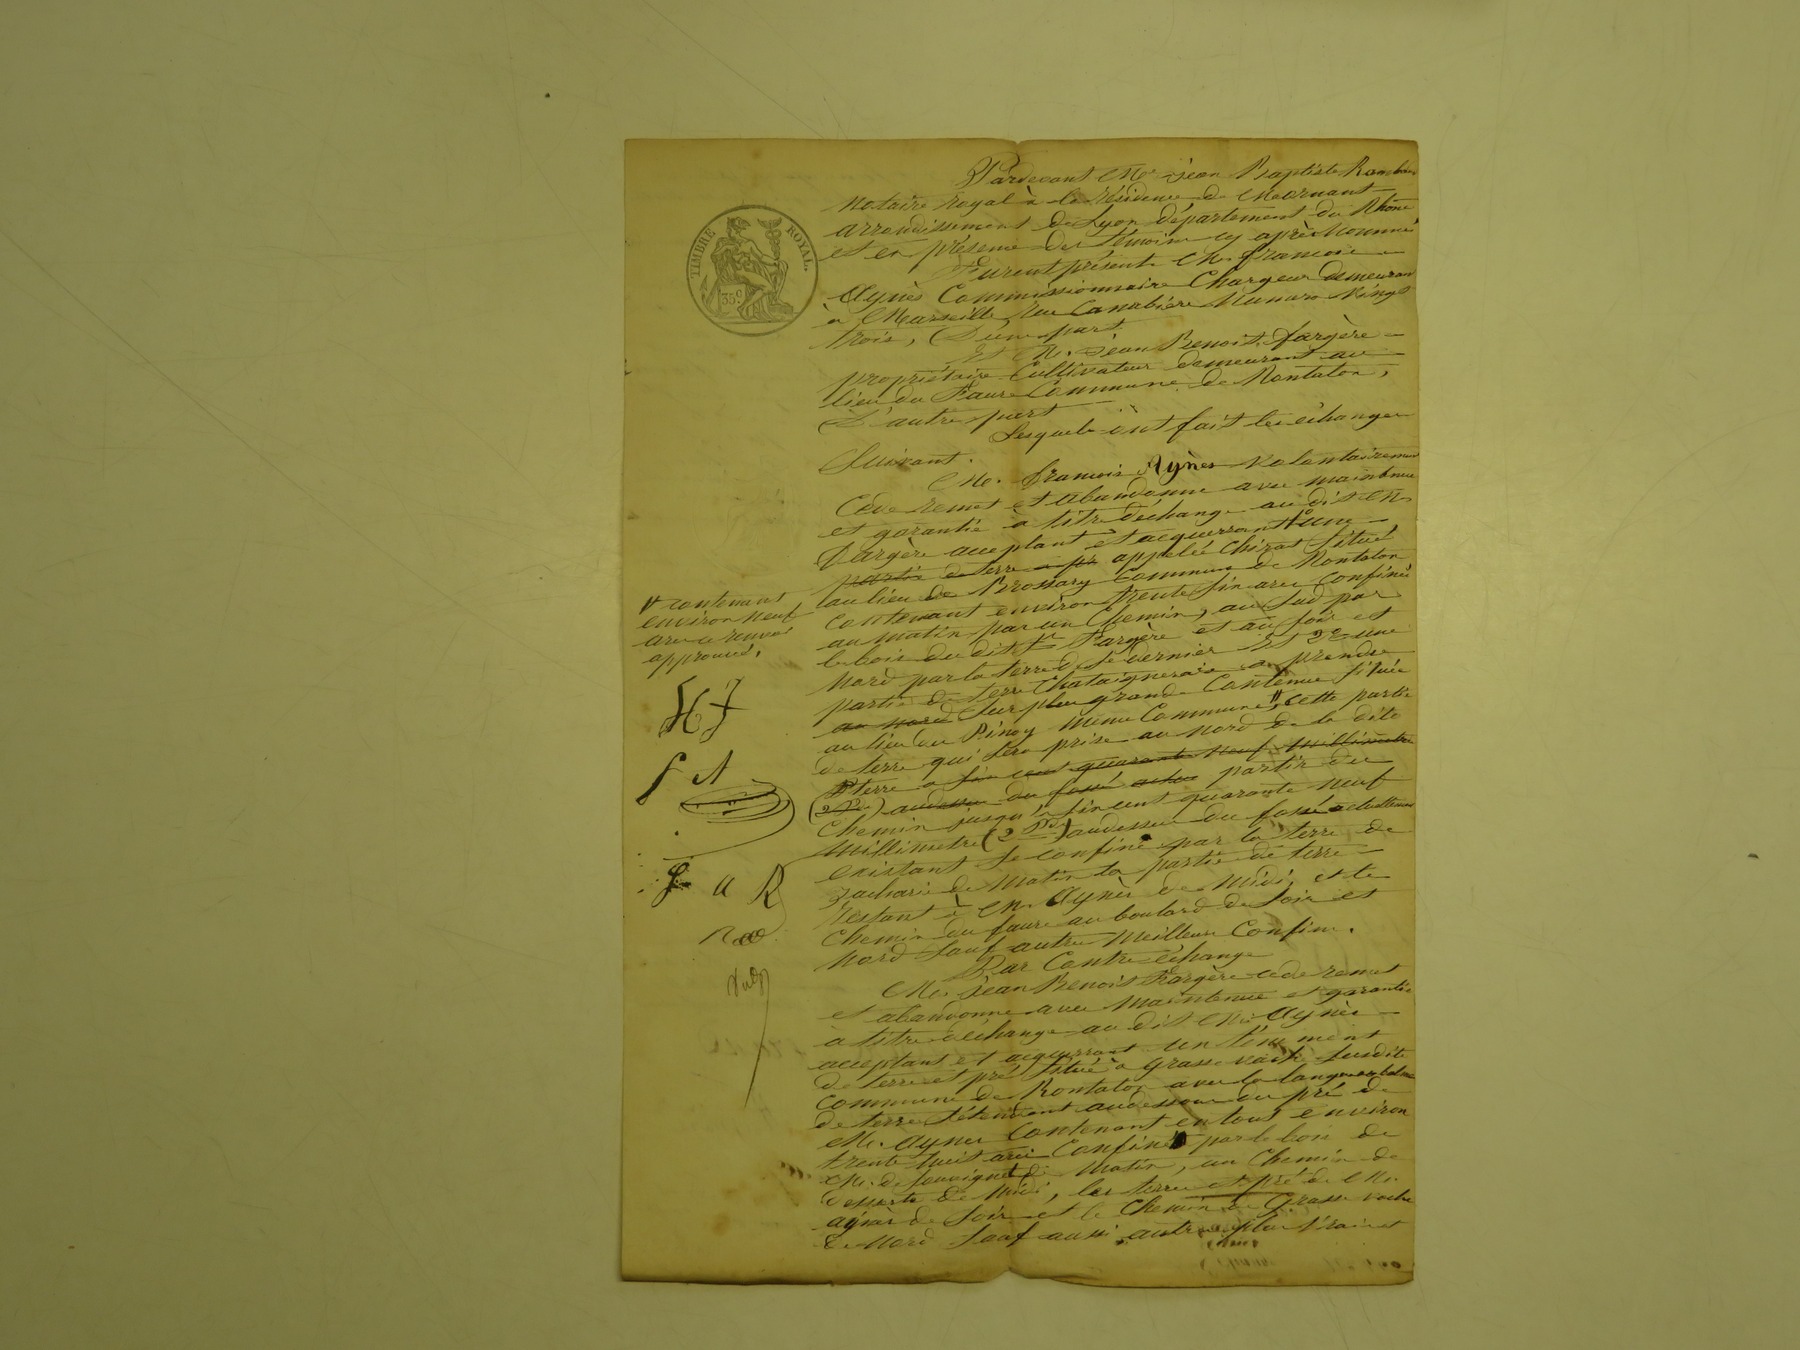 TIMBRE ROYAL.
35c
Pardevant Me Jean Baptiste
Notaire royal à la résidence de Mornant
arrondissement de Lyon département du Rhône
et en présence des témoins cy après nommés
Furent présents Mr. françois
Aynès Commissionnaire Chargeur demeurant
à Marseille rue Canabière Numéro Vingt
trois, D'une part.
Et Mr. Jean Benoit fargère
propriétaire Cultivateur demeurant au
lieu du Faure Commune de Rontalon,
D'autre part
Lesquels ont fait les échanges
Suivant.
Mr. françois Aynès volontairement
Cède remet et abandonne avec maintenue
et garantie à titre d'échange au dit Mr
Fargère acceptant et acquerrant 1° une
partie de terre appelée Chirat située
au lieu de Brossary Commune de Rontalon
contenant environ trente cinq ares confinée
au matin par un Chemin, au Sud par
le bois du dit Sr Fargère et au soir et
Nord par la terre de ce dernier Et 2° une
partie de terre Chataigneraie à prendre
au nord sur plus grande Contenue située
au lieu du Pinay même Commune # cette partie
de terre qui sera prise au Nord de la dite
terre a six cent quarante neuf millimètres
(2 Pds) audessus du fossé partir du
Chemin jusqu'à six cent quarante neuf
Millimètres (2 Pds) audessus du fossé actuellement
existant Se confine par la terre de
Zacharie de Matin la partie de terre
restant à Mr. Aynès de Midi et le
Chemin du faure au boulard de Soir et
Nord Sauf autres Meilleurs Confins.
Par Contre échange
Mr. Jean Benoit Fargère cède remet
et abandonne avec Maintenue et garantie
à titre d'échange au dit Mr. Aynès
acceptant et acquerrant un tènement
de terre et pré situé à Grasse vache susdite
Commune de Rontalon avec la langue
de terre s'étendant audessous du pré de
Mr. Aynès Contenant en tout environ
trente huit ares Confinée par le bois de
Mr. de Jouvignet de Matin, un Chemin de
desserte de Midi, les terre et pré de Mr.
aynès de Soir et le Chemin de Grasse vache
de Nord Sauf aussi autres plus vrais et
# contenant
environ neuf
ares ce renvoi
approuvé.
f A
a R